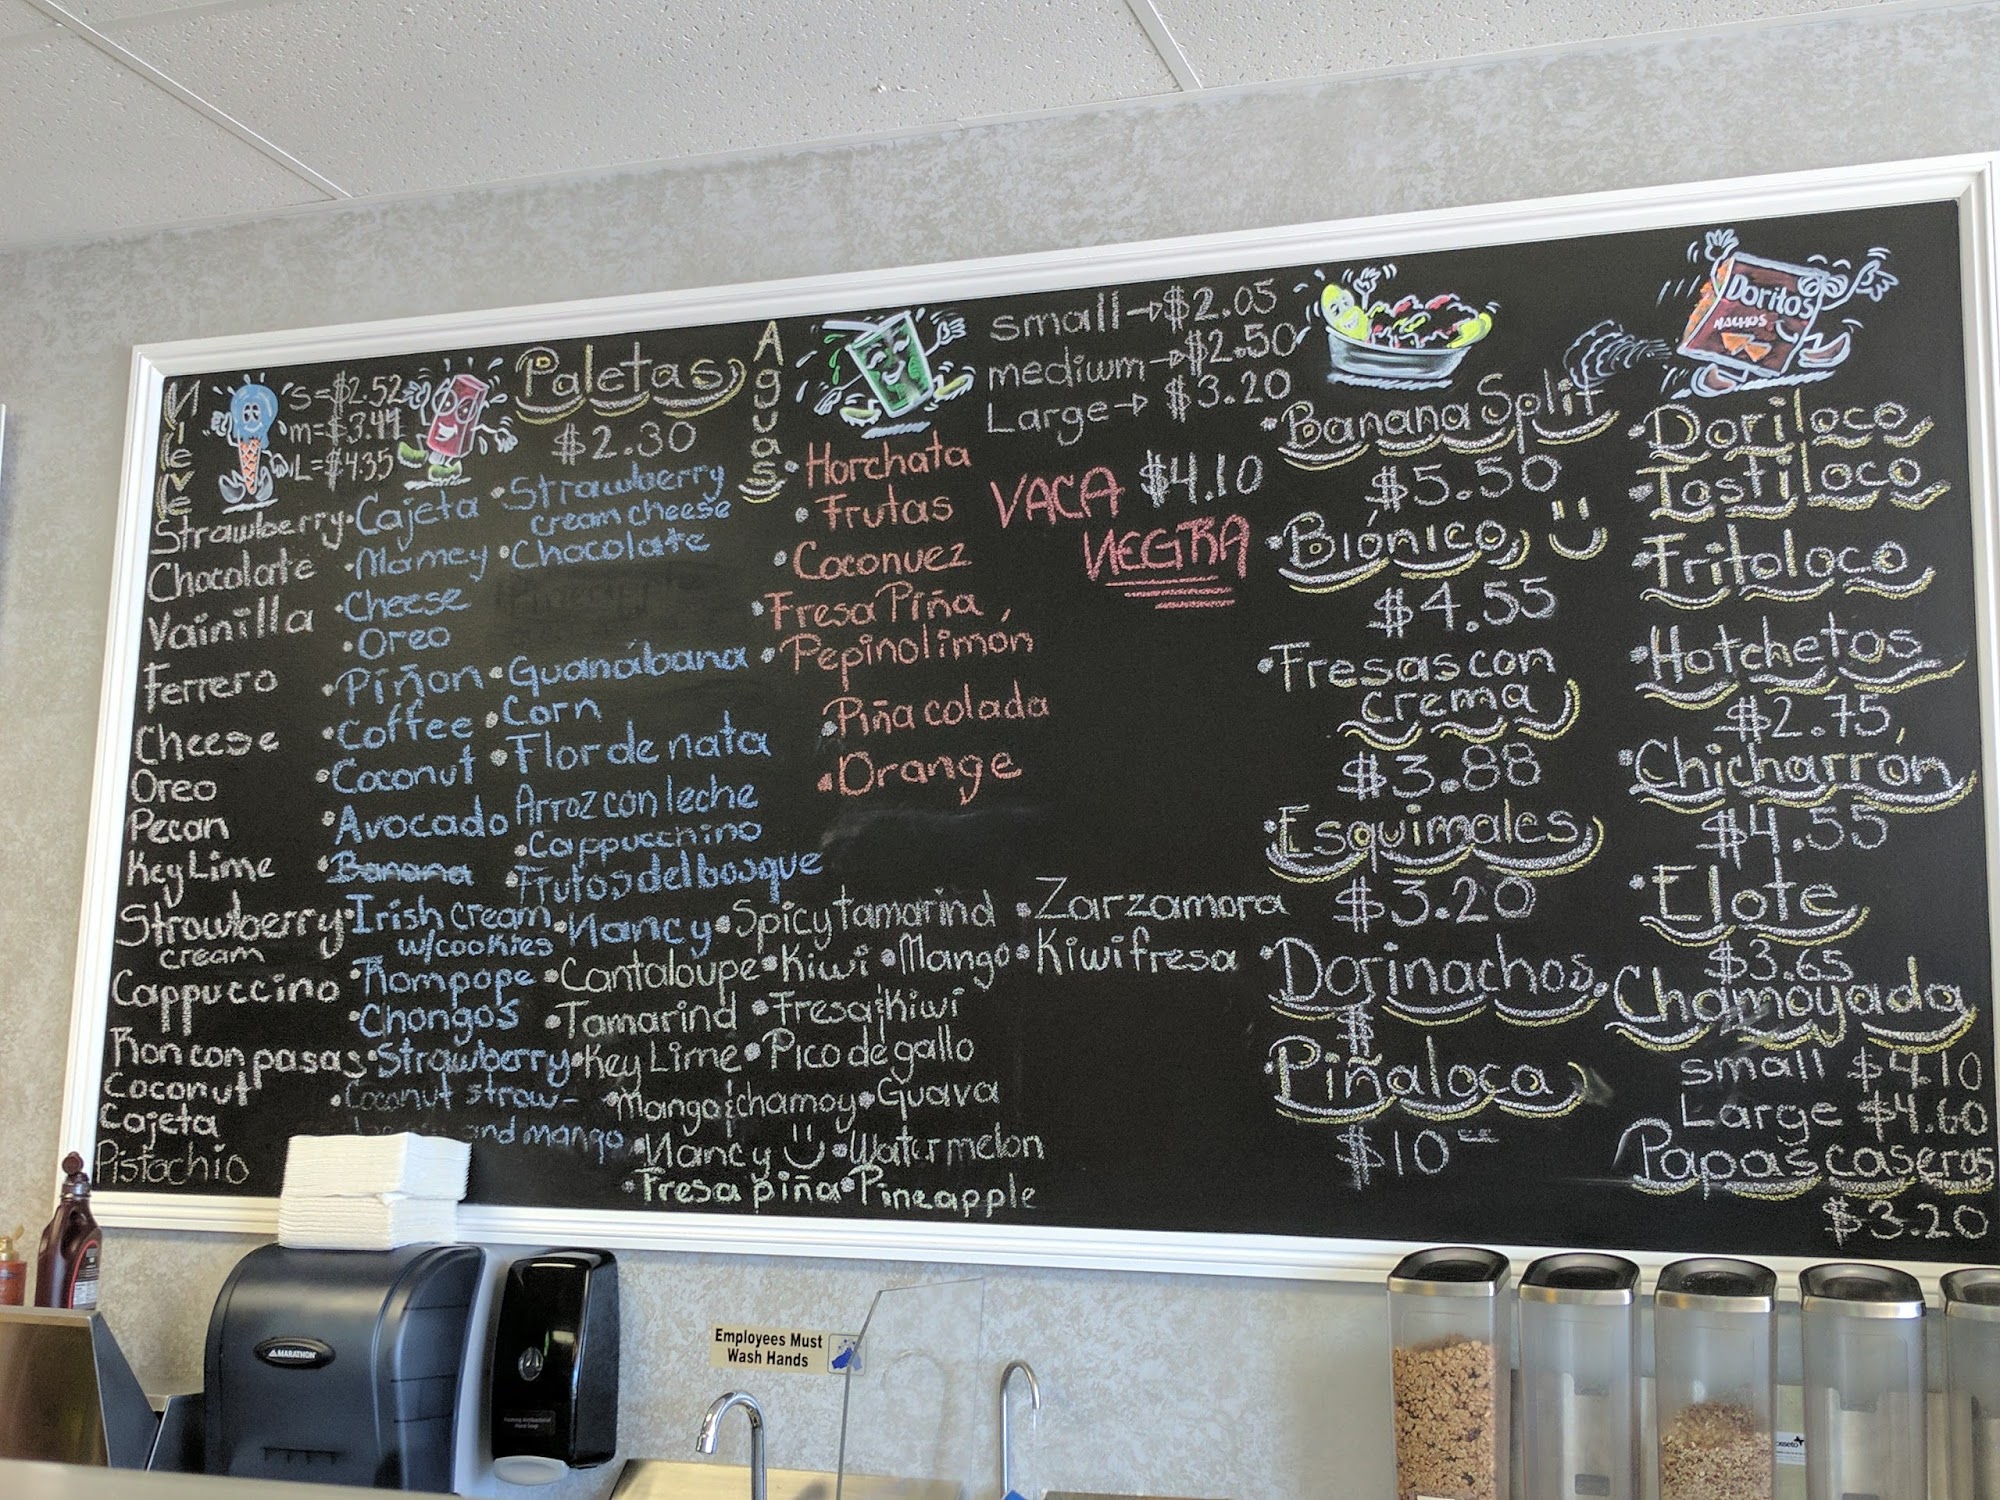 Nieve
S=$2.52
m=$3.44
L=$4.35
Strawberry
Chocolate
Vainilla
Ferrero
Cheese
Oreo
Pecan
Key Lime
Strawberry
cream
Cappuccino
Ron con pasas
Coconut
Cajeta
Pistachio
Paletas
$2.30
•Cajeta
•Mamey
•Cheese
•Oreo
•Piñon
•Coffee
•Coconut
•Avocado
•Banana
•Irish cream
w/cookies
•Rompope
•Chongos
•Strawberry
•Coconut straw-
and mango
•Strawberry
cream cheese
•Chocolate
•Guanábana
•Corn
•Flor de nata
Arroz con leche
•Cappucchino
•Frutos del bosque
•Nancy
•Spicy tamarind
•Zarzamora
•Cantaloupe
•Kiwi
•Mango
•Kiwi fresa
•Tamarind
•Fresa & Kiwi
•Key Lime
•Pico de gallo
•Mango & chamoy
•Guava
•Nancy
•Watermelon
•Fresa piña
•Pineapple
Aguas
small→$2.05
medium→$2.50
Large→$3.20
•Horchata
•Frutas
•Coconuez
•Fresa Piña
•Pepino limón
•Piña colada
•Orange
VACA $4.10
NEGRA
•Banana Split
$5.50
•Biónico
$4.55
•Fresas con
crema
$3.88
•Esquimales
$3.20
•Dorinachos
$
•Piñaloca
$10
Doritos
NACHOS
•Doriloco
•Tostiloco
•Fritoloco
•Hotchetos
$2.75
•Chicharrón
$4.55
•Elote
$3.65
•Chamoyada
small $4.10
Large $4.60
Papas caseras
$3.20
MARATHON
Employees Must
Wash Hands